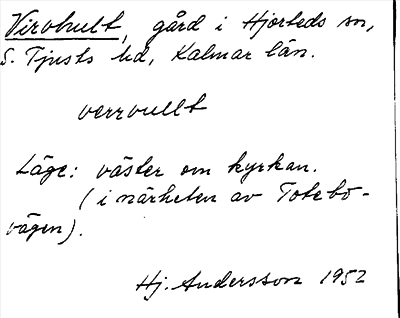 Virohult, gård i Hjorteds sn,
S. Tjusts hd, Kalmar län.
verrvullt
Läge: väster om kyrkan.
(i närheten av Totebo-
vägen).
Hj. Andersson 1952